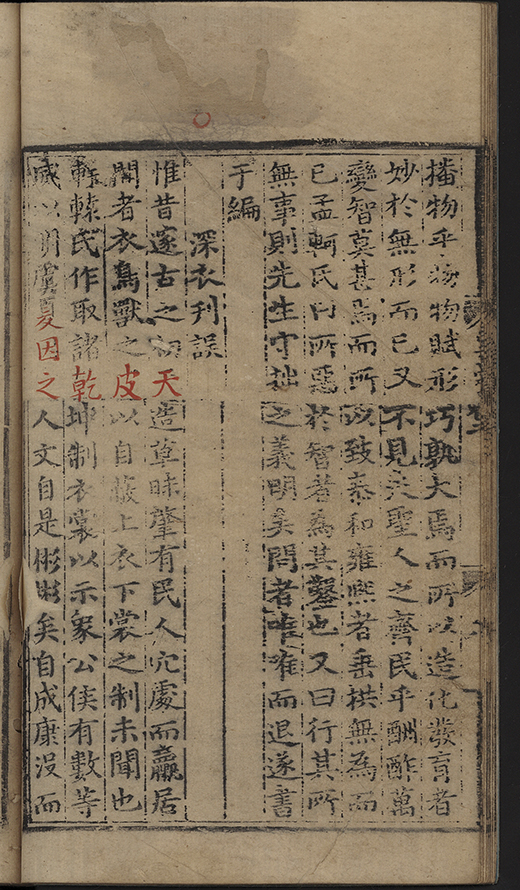 播物乎物物賦形巧孰大焉而所以造化發育者
妙於無形而已又不見夫聖人之齊民乎酬酢萬
變智莫甚焉而所以致泰和雍熙者垂拱無為而
已孟軻氏曰所惡於智者為其鑿也又曰行其所
無事則先生守拙之義明矣問者唯唯而退遂書
于編
深衣刋誤
惟昔邃古之初天造草昧肇有民人穴處而蠃居
聞者衣鳥獸之皮以自蔽上衣下裳之制未聞也
軒轅氏作取諸乾坤制衣裳以示象公侯有數等
威以明虞夏因之人文自是彬彬矣自成康沒而